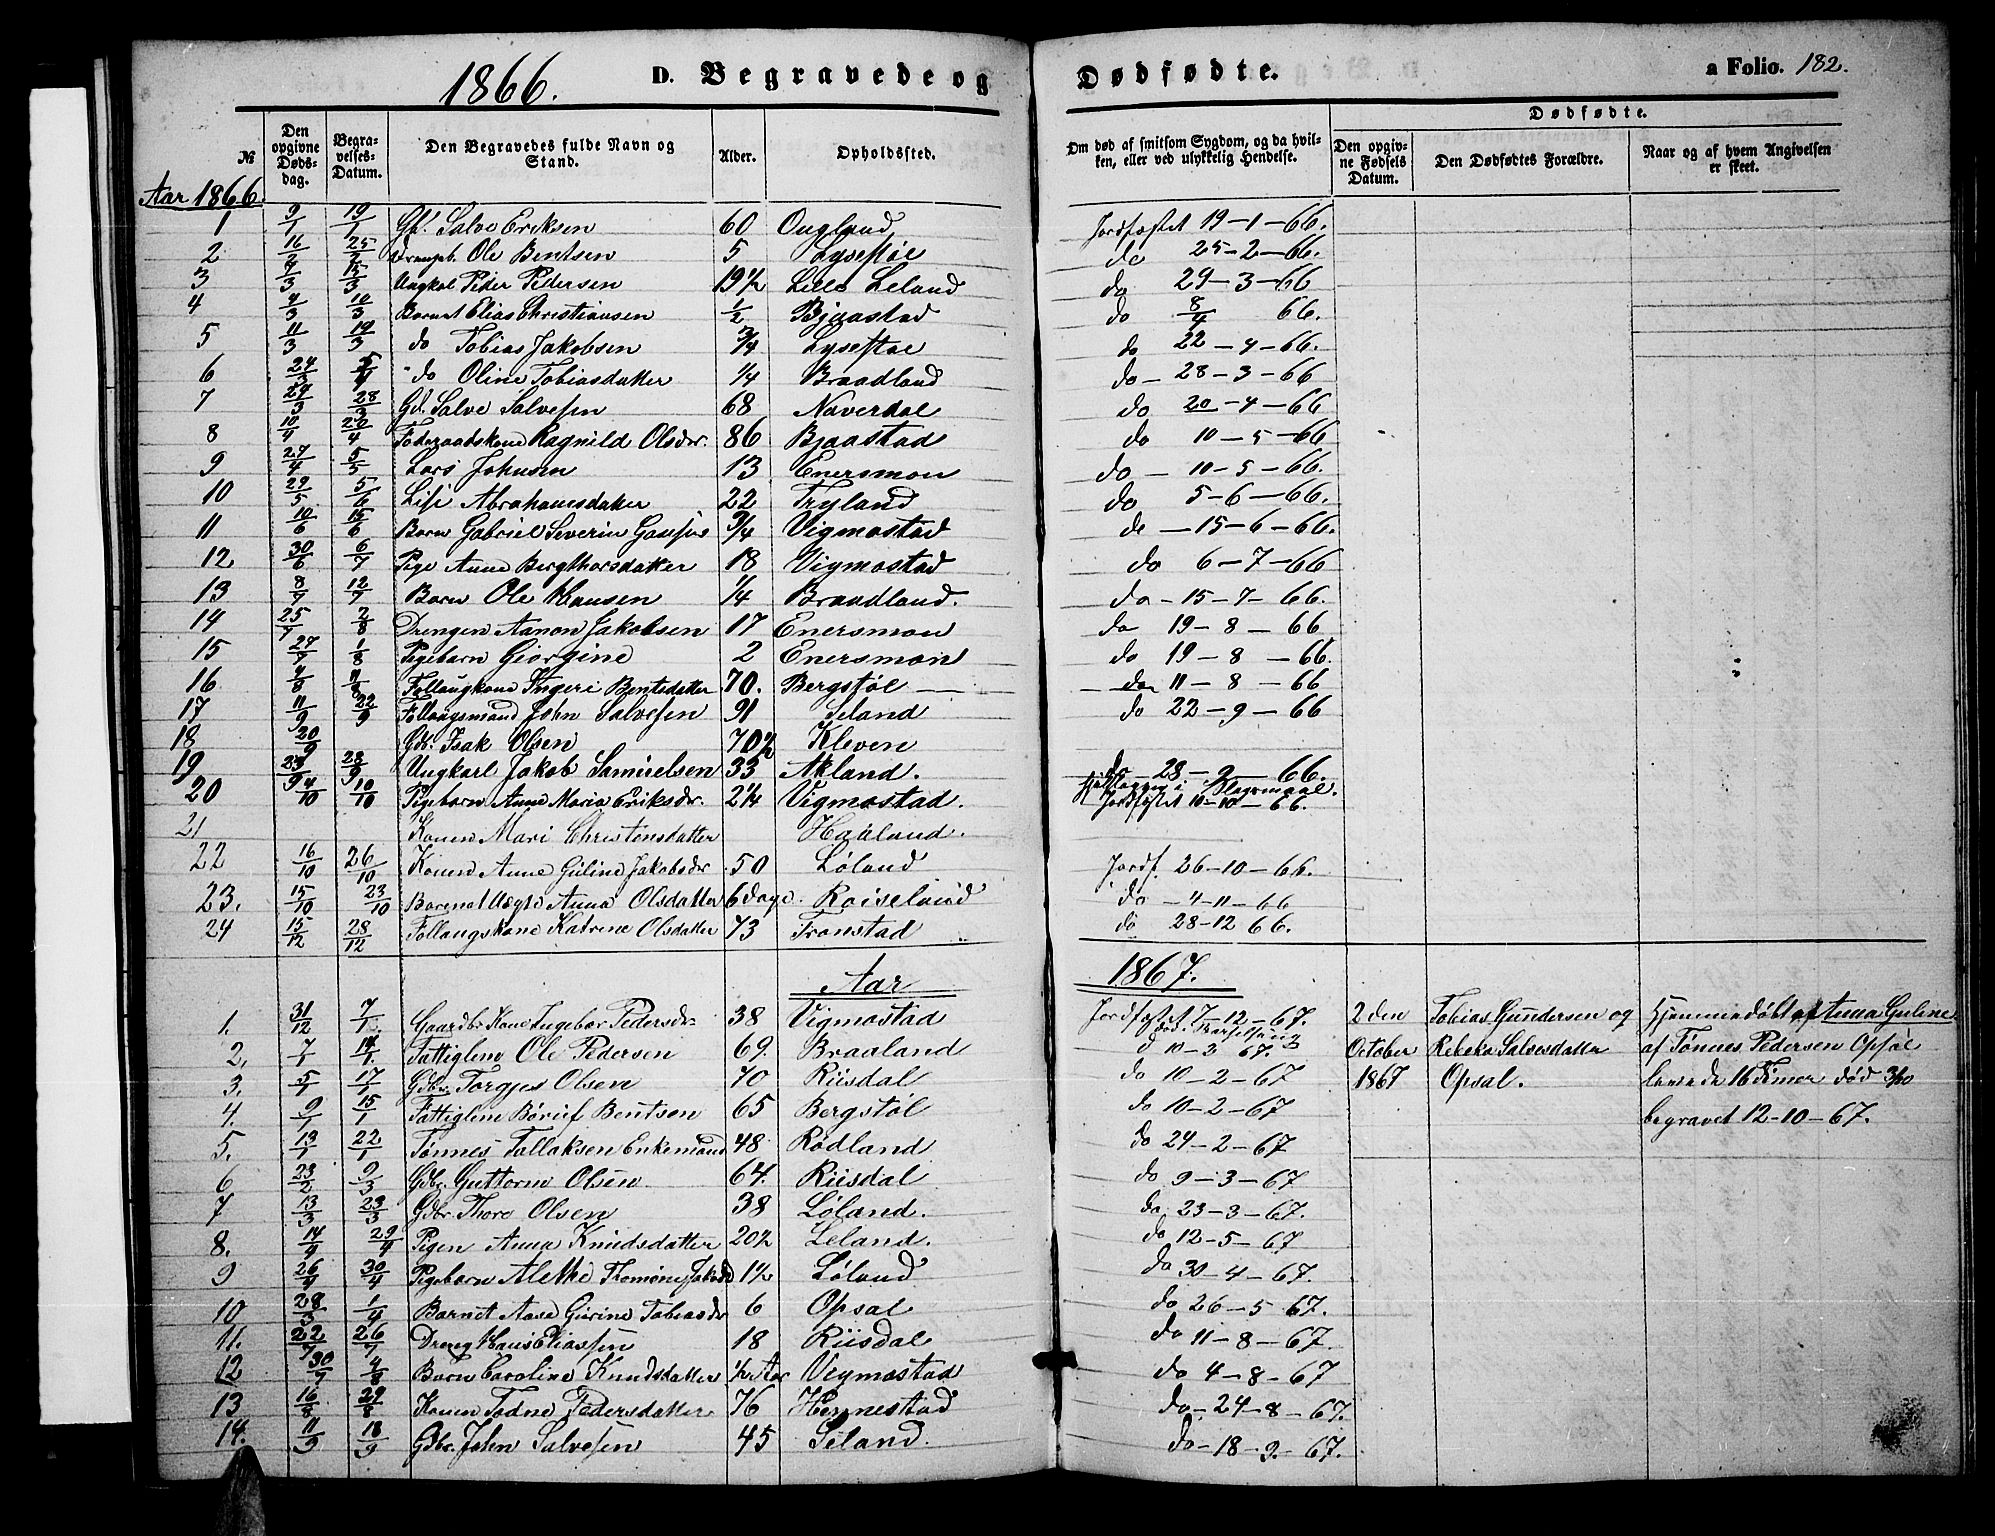 1866. D. Begravede og Dødfødte. a Folio. 182.
Dødfødte.
№ Den opgivne Dødsdag. Begravelses-Datum. Den Begravedes fulde Navn og Stand. Alder. Opholdssted. Om død af smitsom Sygdom, og da hvilken, eller ved ulykkelig Hendelse. Den opgivne Fødsels Datum. Den Dødfødtes Forældre. Naar og af hvem Angivelsen er skeet.
Aar 1866.
1 9/1 19/1 Gd. Salve Eriksen 60 Ougland Jordfæstet 19-1-66.
2 16/2 25/2 Ole Bentsen 5 Lysestøl do 25-2-66.
3 15/3 Ungkal Peder Pedersen 19 1/2 Lille Leland do 29-3-66
4 4/3 10/3 Barnet Elias Christiansen 1/2 Bjaastad do 8/4 66.
5 11/3 19/3 do Tobias Jakobsen 3/4 Lysestøl do 22-4-66.
6 24/3 do Oline Tobiasdatter 1/4 Braadland do-28-3-66
7 28/3 Gd. Salve Salvesen 68 Naverdal do 20-4-66
8 10/4 22/4 Føderaadskone Ragnild Olsdr. 86 Bjaastad do 10-5-66
9 27/4 5/5 Lars Johnsen 13 Enersmon do-10-5-66.
10 29/5 5/6 Lise Abrahamsdatter 22 Tryland do 5-6-66.
11 10/6 15/6 Barn Gabriel Severin 3/4 Vigmostad do-15-6-66.
12 30/6 6/7 Pige Anne Bergthorsdatter 18 Vigmostad do 6-7-66
13 8/7 12/7 Barn Ole Hansen 1/4 Braadland. do-15-7-66.
14 25/7 2/8 Drengen Aanon Jakobsen 17 Enersmon do 19-8-66
15 27/7 1/8 Pigebarn Giorgine 2 Enersmon do 19-8-66.
16 4/8 11/8 Follaugkone Ingeri Bentsdatter 70. Bergstøl do 11-8-66
17 11/9 22/9 Follaugsmand John Salvesen 91 Leland do 22-9-66
18 20/9 Gdr. Isak Olsen 70 1/2 Kleven
19 23/9 28/9 Ungkarl Jakob Samuelsen 33 Akland. do-28-9-66.
20 4/10 10/10 Pigebarn Anne Maria Eriksdr. 2 1/4 Vigmostad. Jordfæstet 10-10-66.
21 Konen Mari Christensdatter Haaland.
22 16/10 26/10 Konen Anne Guline Jakobsdr 50 Løland Jordf. 26-10-66.
23. 15/10 23/10 Barnet Anna Olsdatter 6 dage. Roiseland do-4-11-66
24 15/12 28/12 Follaugskone Katrine Olsdatter 73 Tronstad do 28-12 66.
Aar 1867.
1. 31/12 7/1. Gaardbr. Kone Ingebor Pedersdr 38 Vigmostad Jordfæstet 7-12-67. 2den Tobias Gundersen og Hjemmedøbt af Anna Guline
2. 7/1 14/1 Fattiglem Ole Pedersen 69. Braaland d 10-3 67. October Rebeka Salvesdatter af Tønnes Pedersen Opsal
3. 5/1 17/1 Gdbr. Torgjes Olsen 70 Riisdal do 10-2-67 1867 Opsal. levede 16 Timer død 3/10
4. 9/1 15/1 Fattiglem Bentson 65 Bergstøl do 10-2-67 begravet 12-10-67.
5. 13/1 22/1 Tønnes Tallaksen Enkemand 48 Rødland do 24-2-67
6 23/2 9/3 Gdbr. Guttorm Olsen. 64. Riisdal do 9-3-67
7 13/3 23/3 Gdbr. Thore Olsen 38 Løland. do. 23-3-67.
8. 14/4 29/4 Pigen Anna Knudsdatter 20 1/2 Leland. do 12-5-67
9 26/4 30/4 Pigebarn Alethe 1 1/2 Løland do 30-4-67.
10 28/3 1/4 Barnet Aase Gurine Tobiasdr 6 Opsal do 26-5 67.
11. 22/7 26/7 Dreng Hans Eliassen 18 Riisdal do 11-8-67.
12 30/7 4/8 Barn Caroline Knudsdatter 1/2 Aar Vigmostad do 4-8-67
13 16/8 29/8 Konen Todne Pedersdatter 76 Hennestad do-24-8-67.
14. 11/9 18/9 Gdbr. John Salvesen 45 Leland. do-18-9-67.